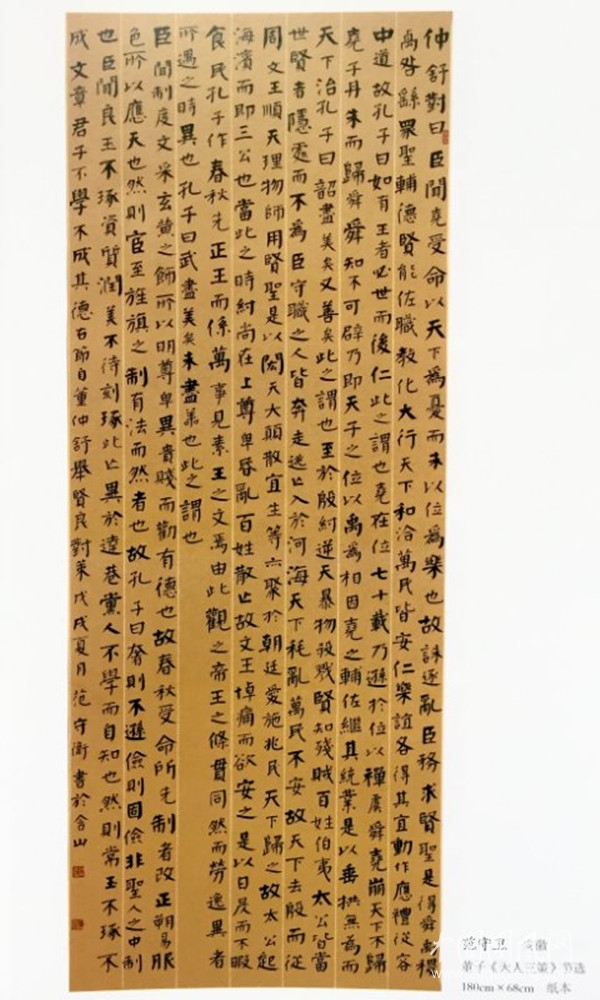 仲舒對曰臣聞堯受命以天下為憂而未以位為樂也故誅逐亂臣務求賢聖是得舜禹稷
禼咎繇眾聖輔德賢能佐職教化大行天下和洽萬民皆安仁樂誼各得其宜動作應禮從容
中道故孔子曰如有王者必世而後仁此之謂也堯在位七十載乃遜於位以禪虞舜堯崩天下不歸
堯子丹朱而歸舜舜知不可辟乃即天子之位以禹為相因堯之輔佐繼其統業是以垂拱無為而
天下治孔子曰韶盡美矣又善矣此之謂也至於殷紂逆天暴物殺戮賢知殘賊百姓伯夷太公皆當
世賢者隱處而不為臣守職之人皆奔走逃亡入於河海天下耗亂萬民不安故天下去殷而從
周文王順天理物師用賢聖是以閎夭大顛散宜生等亦聚於朝廷愛施兆民天下歸之故太公起
海濱而即三公也當此之時紂尚在上尊卑昏亂百姓散亡故文王悼痛而欲安之是以日昃而不暇
食民孔子作春秋先正王而係萬事見素王之文焉由此觀之帝王之條貫同然而勞逸異者
所遇之時異也孔子曰武盡美矣未盡善也此之謂也
臣聞制度文采玄黃之飾所以明尊卑異貴賤而勸有德也故春秋受命所先制者改正朔易服
色所以應天也然則宮至旌旗之制有法而然者也故孔子曰奢則不遜儉則固儉非聖人之中制
也臣聞良玉不琢資質潤美不待刻琢此亡異於達巷黨人不學而自知也然則常玉不琢不
成文章君子不學不成其德右節自董仲舒舉賢良對策戊戌夏月范守衛書於含山
范守卫 安徽
董子《天人三策》节选
180cm×68cm 纸本